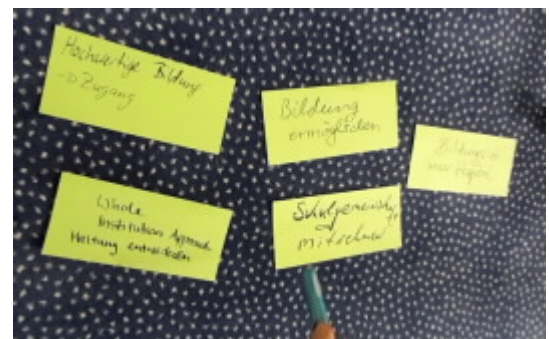 Hochwertige Bildung
→ Zugang
Bildung
ermöglichen
Whole
Institution Approach
Haltung entwickeln
Schulgemeinschaft